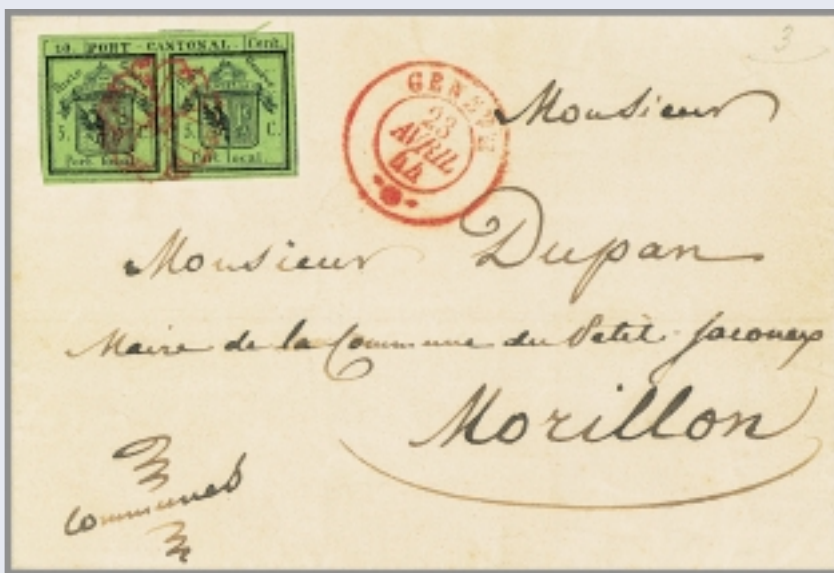 10. PORT CANTONAL. Cent.
Poste Genève Poste Genève
5. C. 5. C.
Port local. Port local.
GENEVE
23
AVRIL
44
3
Monsieur
Monsieur Dupan
Maire de la Commune du Petit Saconnex
Morillon
Communes